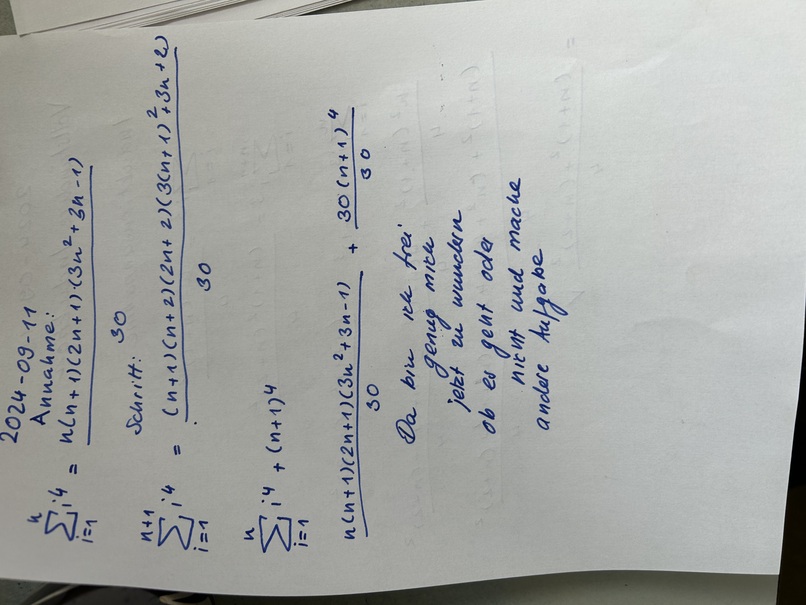 2024-09-11
Annahme:
n∑i=1 i⁴ = n(n+1)(2n+1)(3n²+3n-1) / 30
Schritt:
n+1∑i=1 i⁴ = (n+1)(n+2)(2n+2)(3(n+1)²+3n+2) / 30
n∑i=1 i⁴ + (n+1)⁴
n(n+1)(2n+1)(3n²+3n-1) / 30 + 30(n+1)⁴ / 30
Da bin ich frei
genug mich
jetzt zu wundern
ob es geht oder
nicht und mache
andere Aufgabe